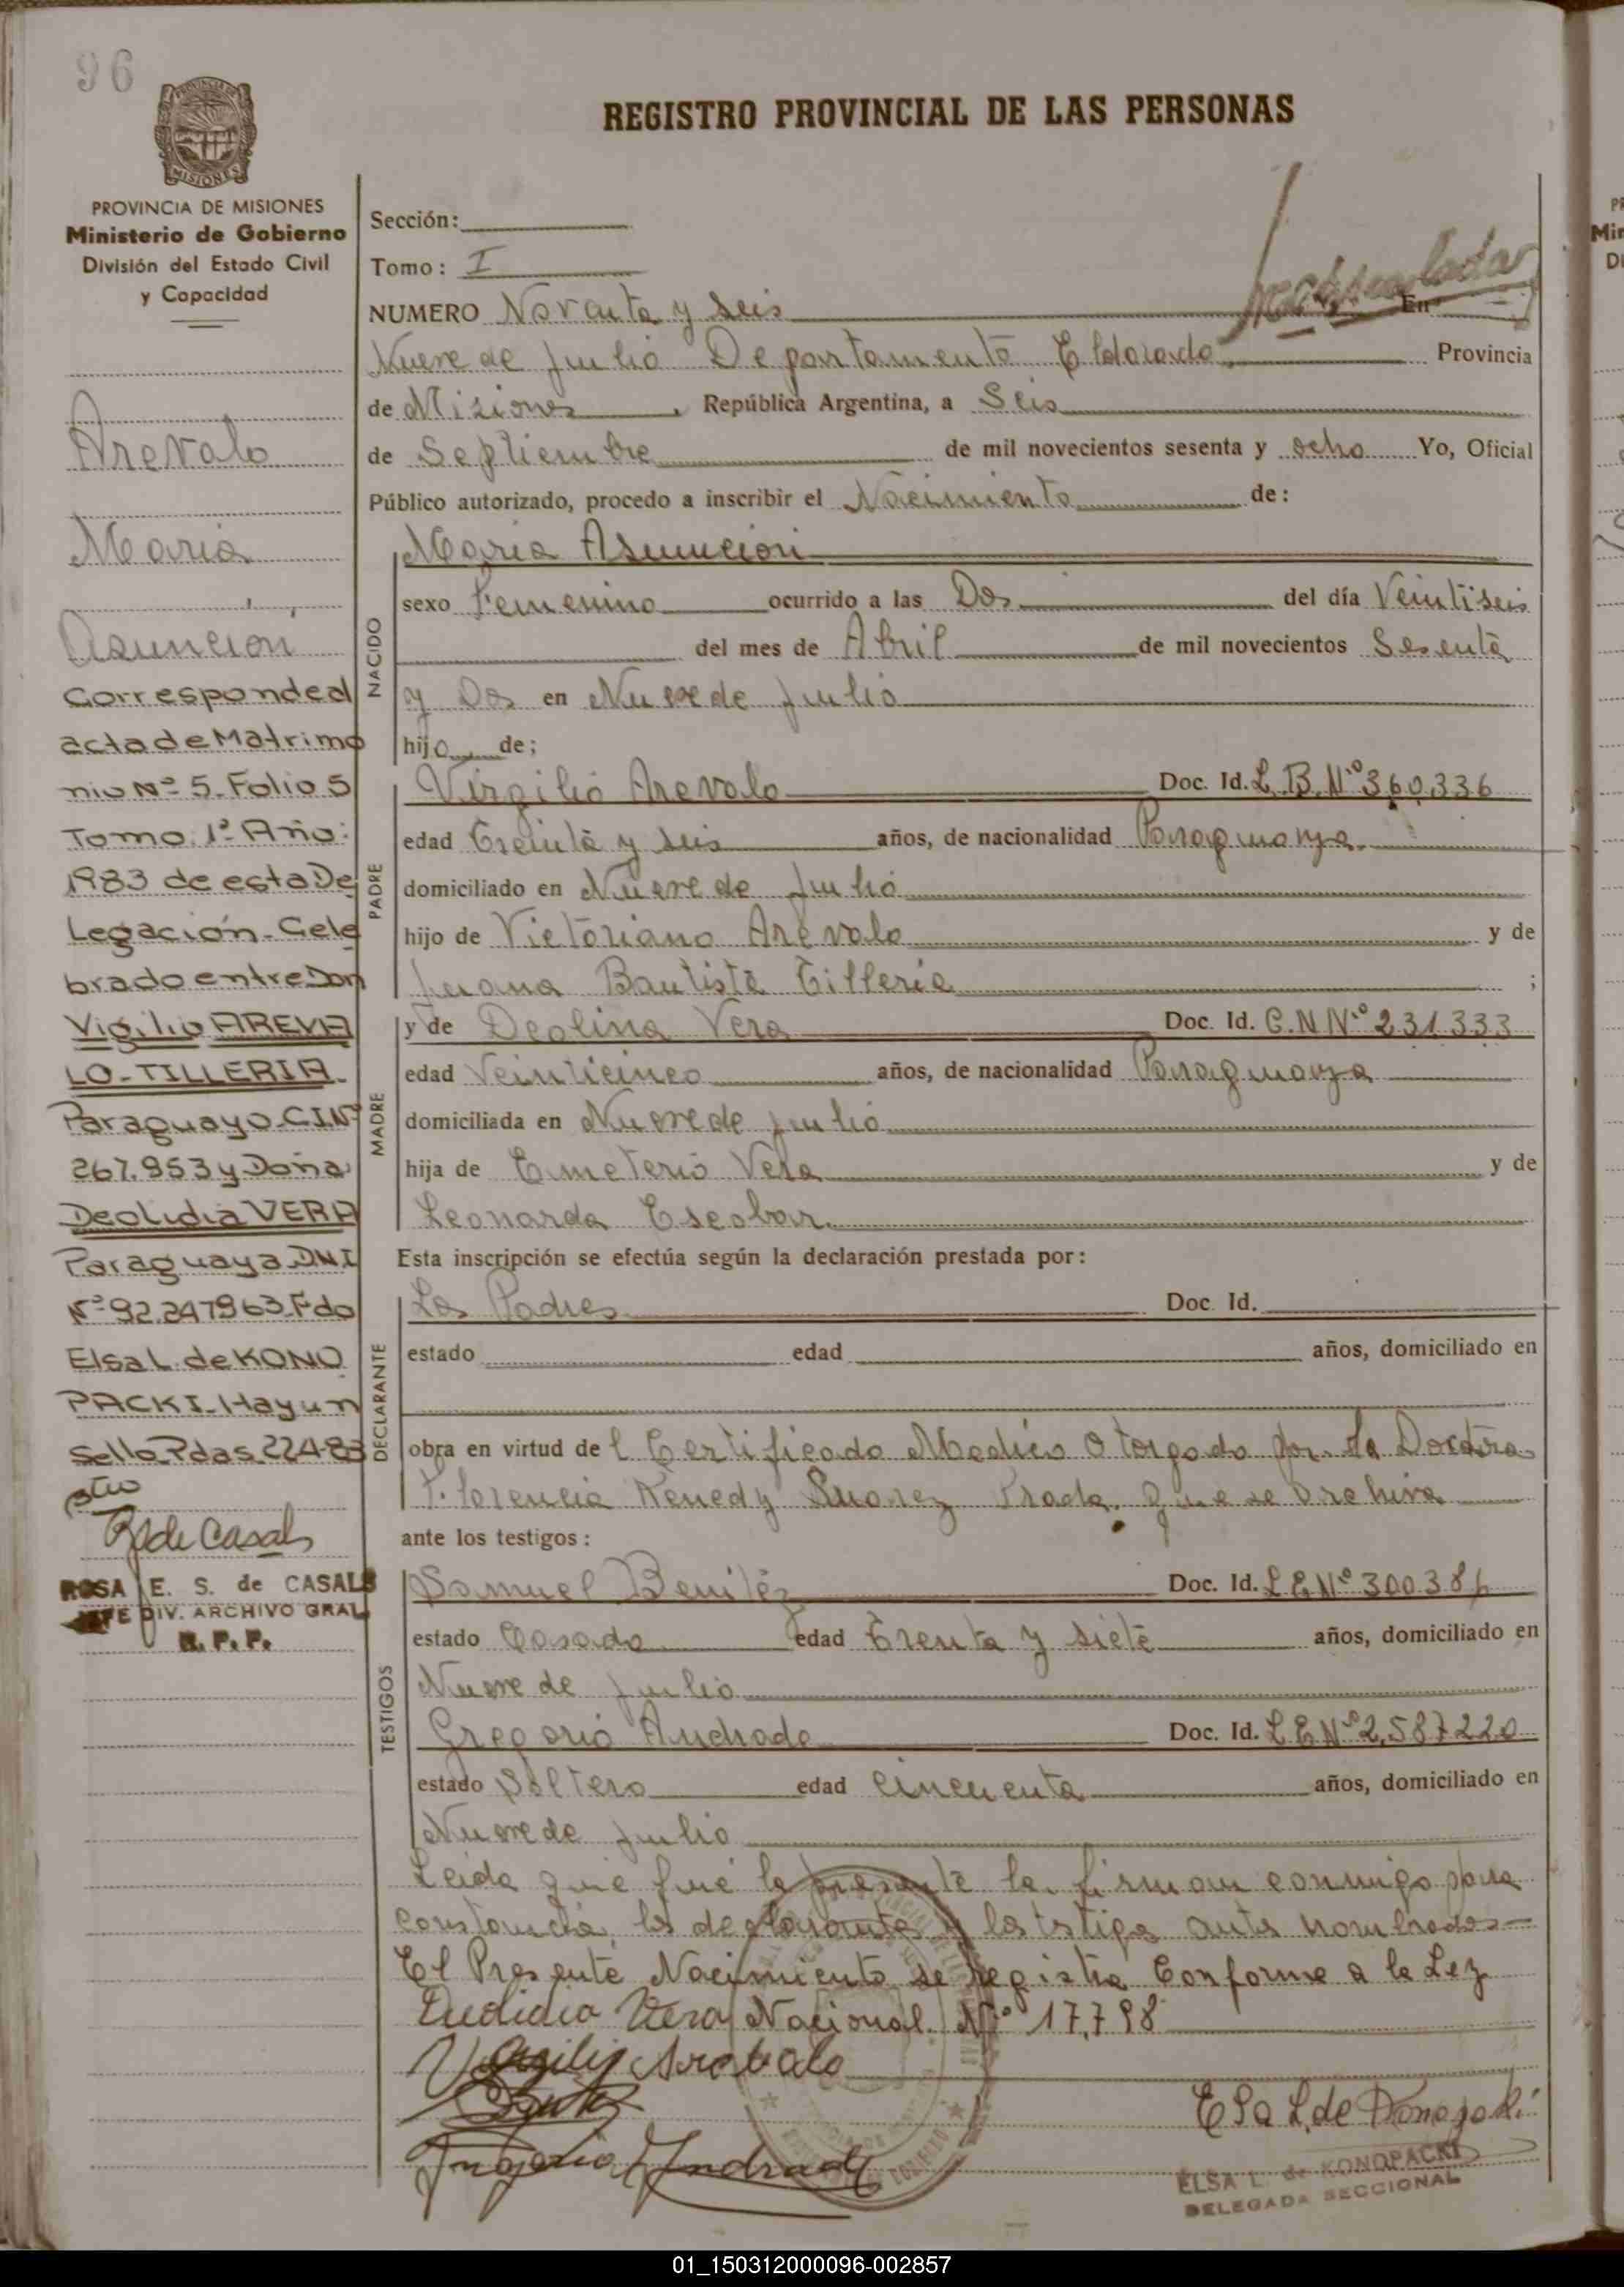 96
PROVINCIA DE MISIONES
MISIONES
PROVINCIA DE MISIONES
Ministerio de Gobierno
División del Estado Civil
y Capacidad
Arevalo
Maria
Asunción
Corresponde al
acta de Matrimo
nio Nº 5. Folio 5
Tomo: 1º Año:
1983 de esta De
Legación. Cele
brado entre Don
Vigilio AREVA
LO-TILLERIA.
Paraguayo. C.I.Nº
267.953 y Doña
Deolidia VERA
Paraguaya. DNI
Nº 92.247963. Fdo
Elsa L. de KONO
PACKI. Hay un
Sello. Pdas. 22-4-83
R de Casals
ROSA E. S. de CASALS
JEFE DIV. ARCHIVO GRAL
R. P. P.
REGISTRO PROVINCIAL DE LAS PERSONAS
Sección:
Tomo: I
NUMERO Noventa y seis En
Nueve de Julio Departamento Eldorado Provincia
de Misiones, República Argentina, a Seis
de Septiembre de mil novecientos sesenta y ocho Yo, Oficial
Público autorizado, procedo a inscribir el Nacimiento de:
NACIDO
Maria Asuncion
sexo Femenino ocurrido a las Dos del día Veintiseis
del mes de Abril de mil novecientos Sesenta
y Dos en Nueve de Julio
hijo de;
PADRE
Virgilio Arevalo Doc. Id. L.B. Nº 360,336
edad Treinta y seis años, de nacionalidad Paraguaya.
domiciliado en Nueve de Julio
hijo de Victoriano Arevalo y de
Juana Bautista Tilleria ;
MADRE
y de Deolina Vera Doc. Id. C.N Nº 231.333
edad Veinticinco años, de nacionalidad Paraguaya
domiciliada en Nueve de Julio
hija de Emeterio Vera y de
Leonarda Escobar
Esta inscripción se efectúa según la declaración prestada por:
DECLARANTE
Los Padres Doc. Id.
estado edad años, domiciliado en
obra en virtud del Certificado Medico Otorgado por la Doctora
Florencia Kenedy Suarez Prada. que se archiva
ante los testigos:
TESTIGOS
Samuel Benitez Doc. Id. L E Nº
estado Casado edad Trenta y siete años, domiciliado en
Nueve de Julio
Gregorio Andrade Doc. Id. L E Nº 2,587220
estado Soltero edad Cincuenta años, domiciliado en
Nueve de Julio
Leida que fué la presente la firman conmigo para
constancia, los declarantes y los testigos antes nombrados
El Presente Nacimiento se registra Conforme a la Ley
Vera Nacional. Nº 17,798
Virgilio Arevalo
Andrade
Elsa L. de Konopacki
ELSA L. de KONOPACKI
DELEGADA SECCIONAL
01_150312000096-002857